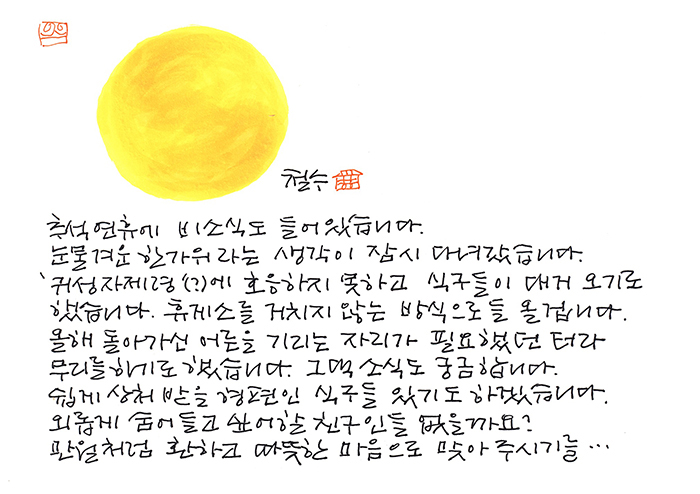 철수
추석연휴에 비소식도 들어있습니다.
눈물겨운 한가위 라는 생각이 잠시 다녀갔습니다.
'귀성자제령(?)에 호응하지 못하고 식구들이 대거 오기로
했습니다. 휴게소를 거치지 않는 방식으로들 올겁니다.
올해 돌아가신 어른을 기리는 자리가 필요했던 터라
무리를하기로했습니다. 그댁 소식도 궁금합니다.
쉽게 상처 받을 형편인 식구들 있기도 하겠습니다.
외롭게 숨어들고 싶어할 친구인들 없을까요?
만월처럼 환하고 따뜻한 마음으로 맞아 주시기를…